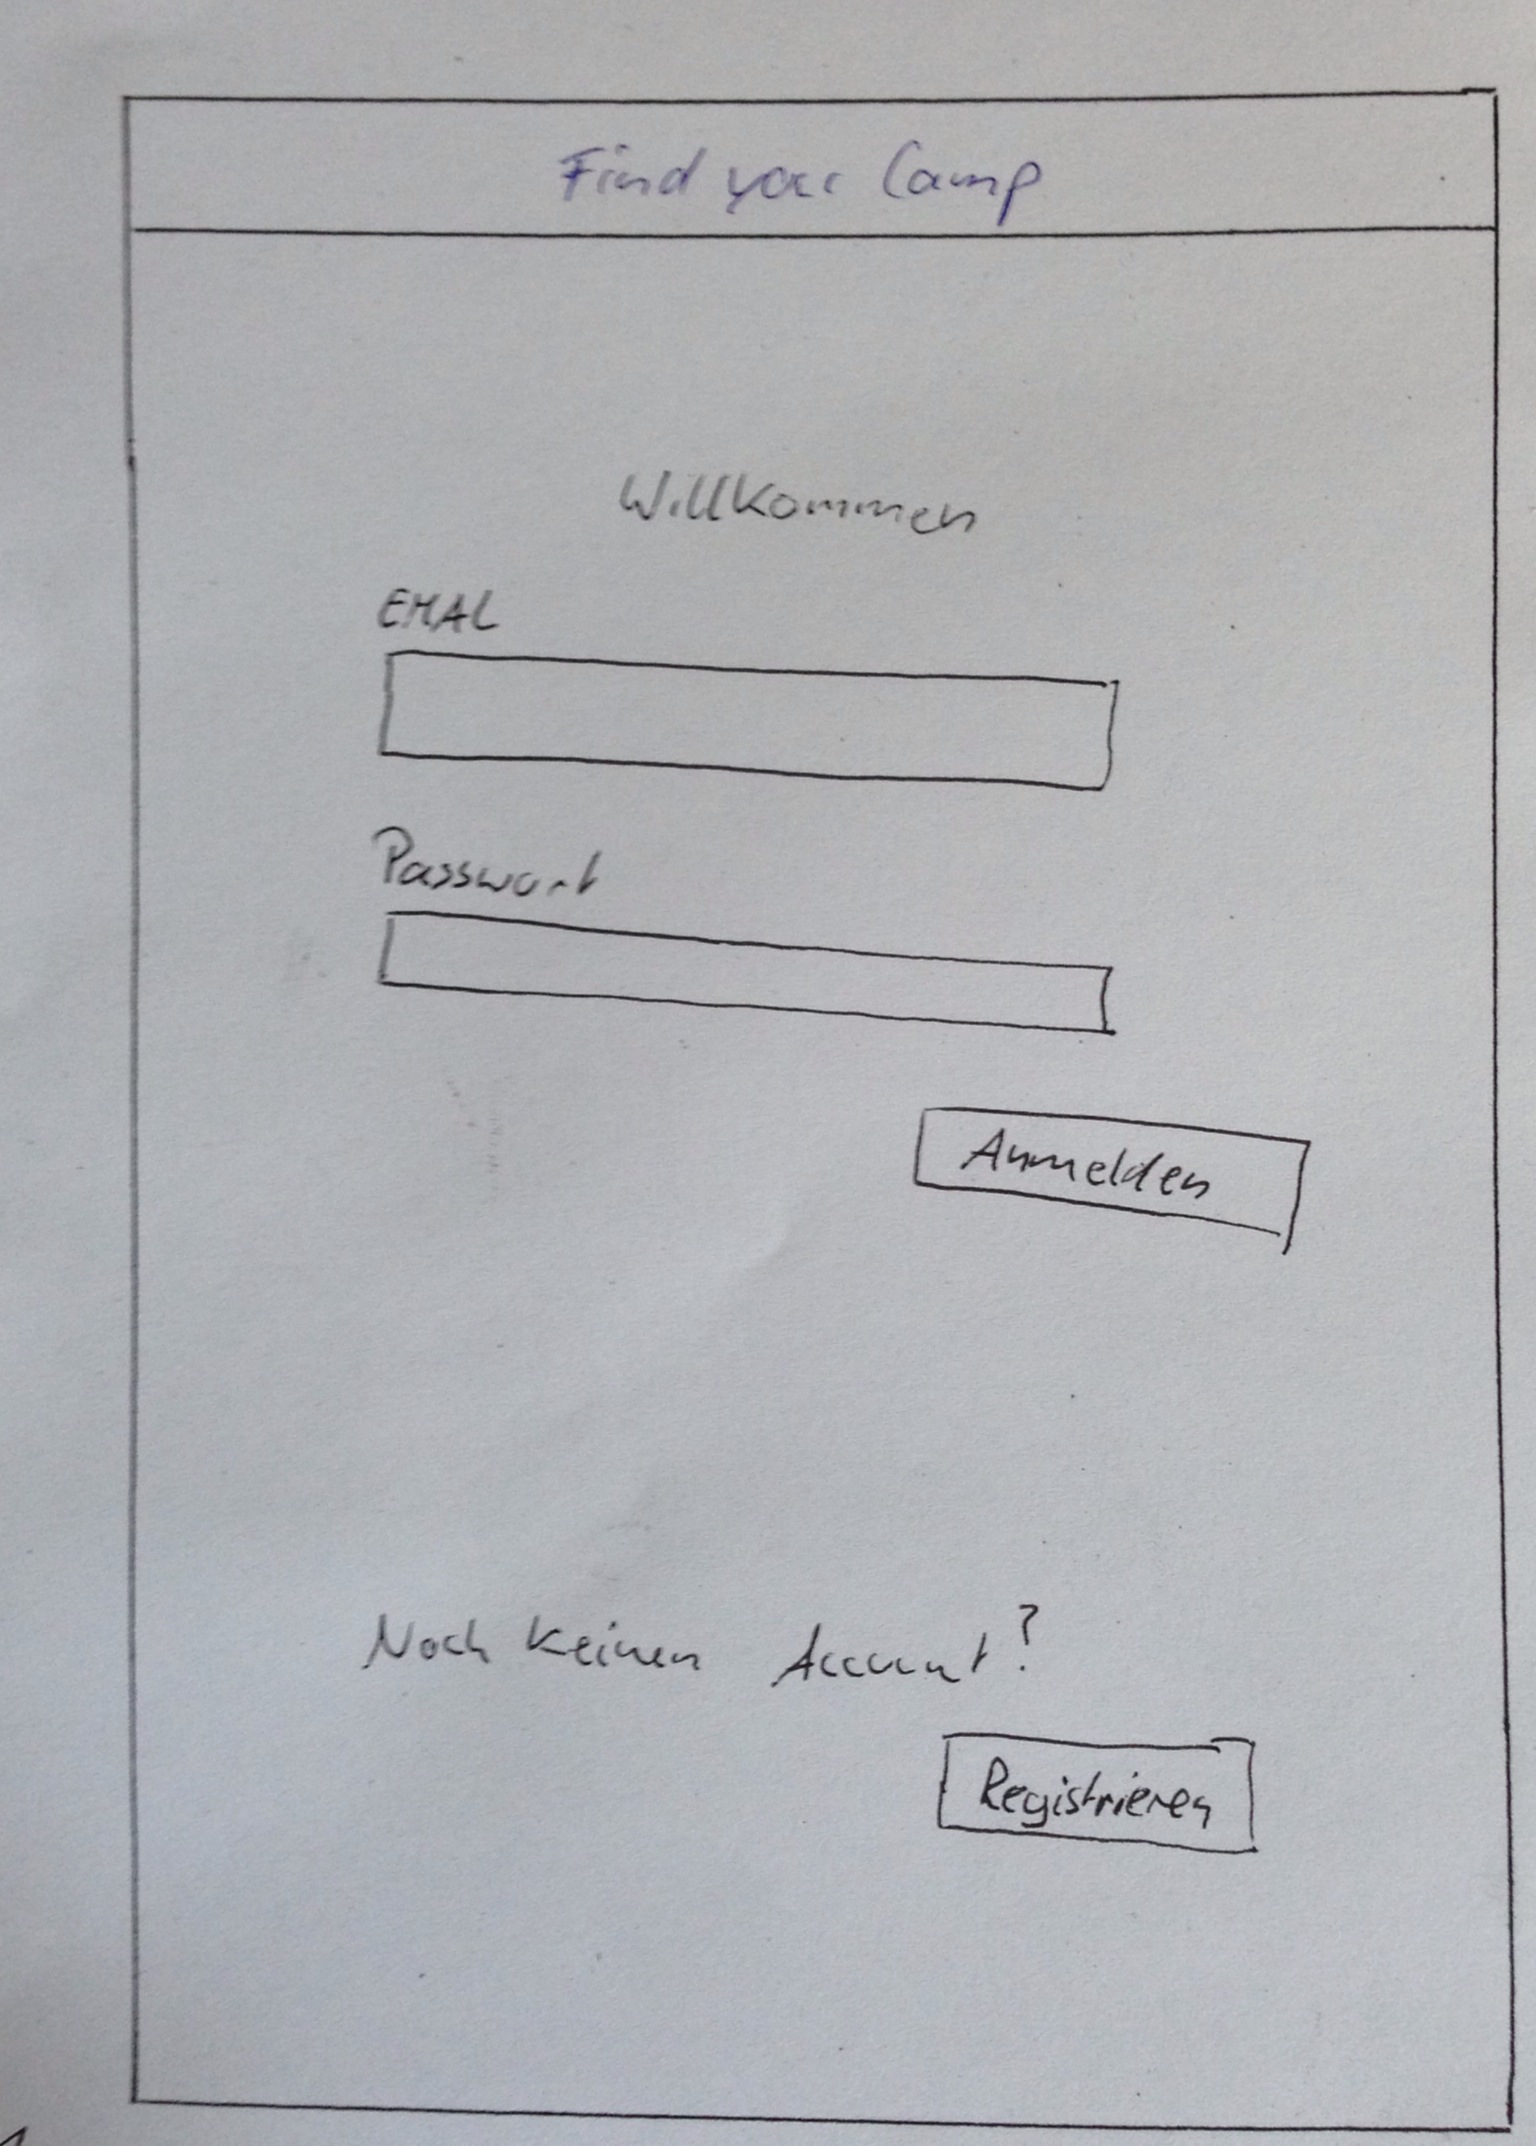 Find your Camp
Willkommen
EMAL
Passwort
Anmelden
Noch keinen Account?
Registrieren